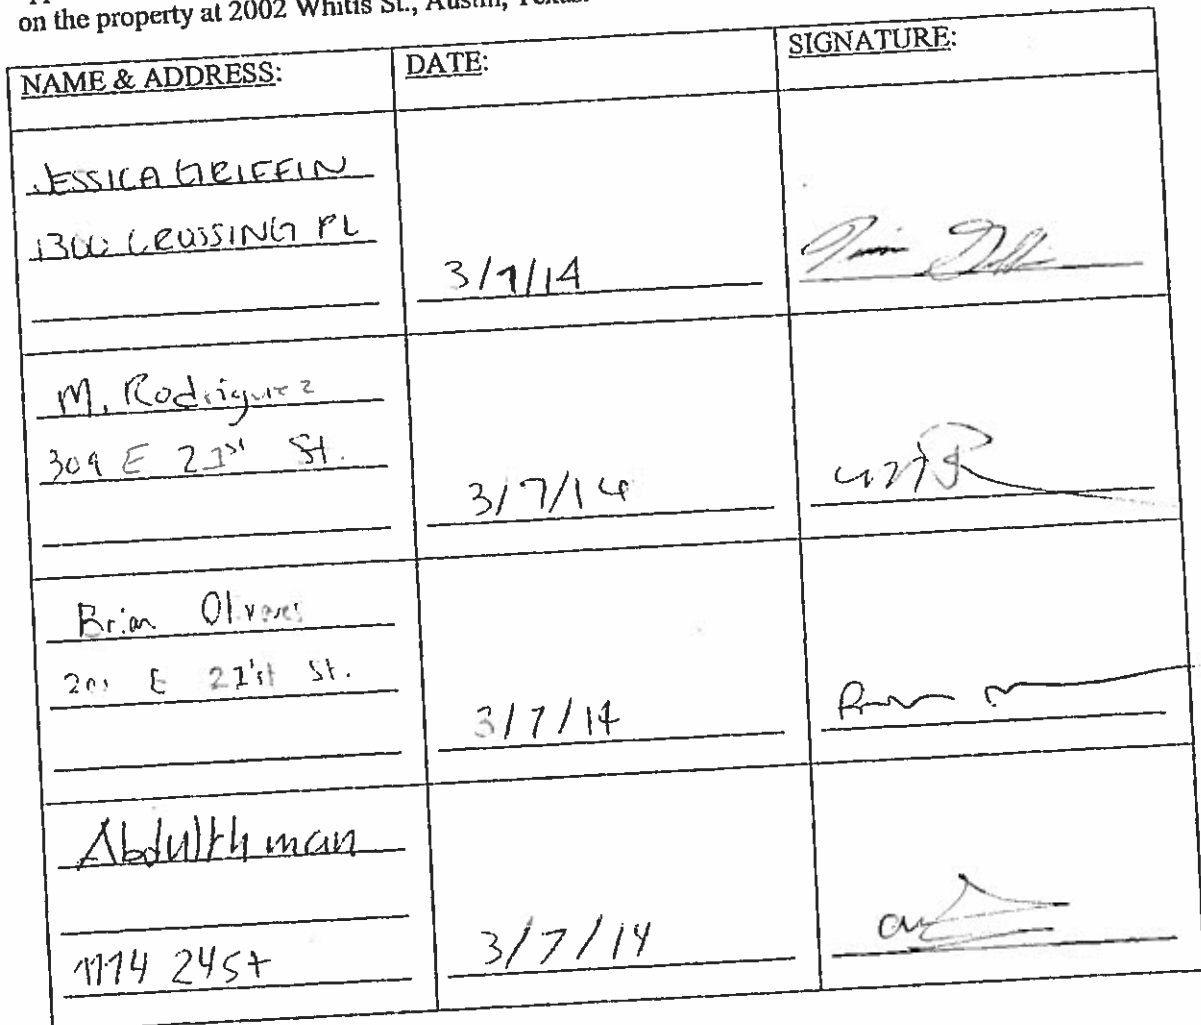 on the property at 2002 Whitis St., Austin, Texas.
NAME & ADDRESS: DATE: SIGNATURE:
JESSICA GRIFFIN
1300 CROSSING PL
3/7/14
M. Rodriguez
309 E 21st St.
3/7/14
Brian
E 21'st St.
3/7/14
3/7/14
24St